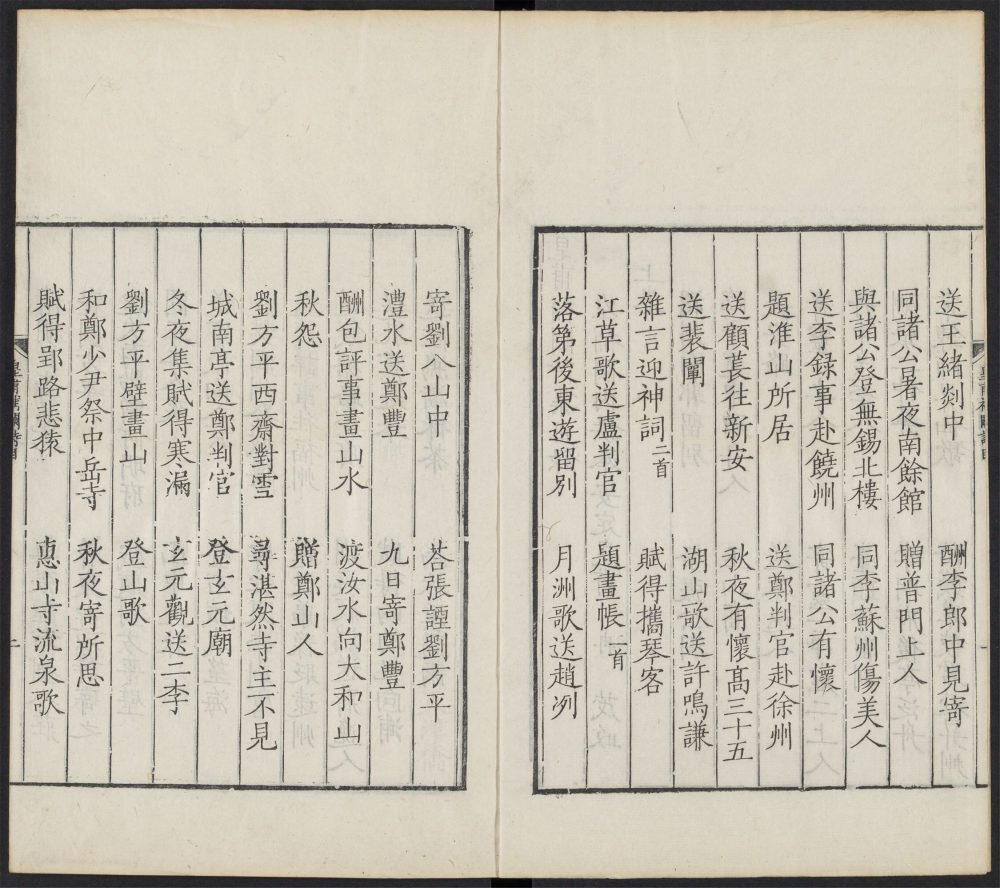 送王緒剡中　酬李郎中見寄
同諸公暑夜南餘館　贈普門上人
與諸公登無錫北樓　同李蘇州傷美人
送李録事赴饒州　同諸公有懷
題淮山所居　送鄭判官赴徐州
送顧萇往新安　秋夜有懷高三十五
送裴闡　湖山歌送許鳴謙
雜言迎神詞二首　賦得攜琴客
江草歌送盧判官　題畫帳二首
落第後東遊留別　月洲歌送趙冽
寄劉八山中　荅張諲劉方平
澧水送鄭豐　九日寄鄭豐
酬包評事畫山水　渡汝水向大和山
秋怨　贈鄭山人
劉方平西齋對雪　尋湛然寺主不見
城南亭送鄭判官　登玄元廟
冬夜集賦得寒漏　玄元觀送二李
劉方平壁畫山　登山歌
和鄭少尹祭中岳寺　秋夜寄所思
賦得郢路悲猿　惠山寺流泉歌